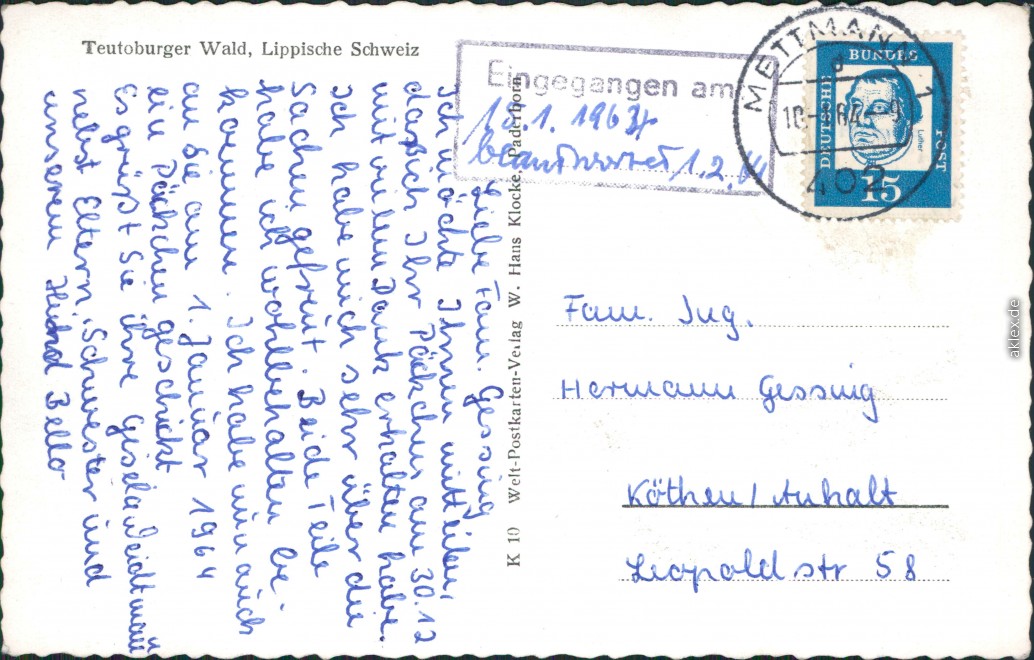 Teutoburger Wald, Lippische Schweiz
Liebe Fam. Gessing
Ich möchte Ihnen mitteilen,
daß ich Ihr Päckchen am 30.12
mit vielem Dank erhalten habe.
Ich habe mich sehr über die
Sachen gefreut. Beide Teile
habe ich wohlbehalten be-
kommen. Ich habe nun auch
an Sie am 1. Januar 1964
ein Päckchen geschickt
Es grüßt Sie ihre Gisela Weidtmann
nebst Eltern, Schwester und
unserem Hund Bello
K 10 Welt-Postkarten-Verlag W. Hans Klocke, Paderborn
Eingegangen am
1.1963
beantwortet 1.2.64
METTMANN 1
402
DEUTSCHE BUNDESPOST
Luther
15
Fam. Ing.
Hermann Gessing
Köthen/Anhalt
Leopoldstr 58
aklex.de